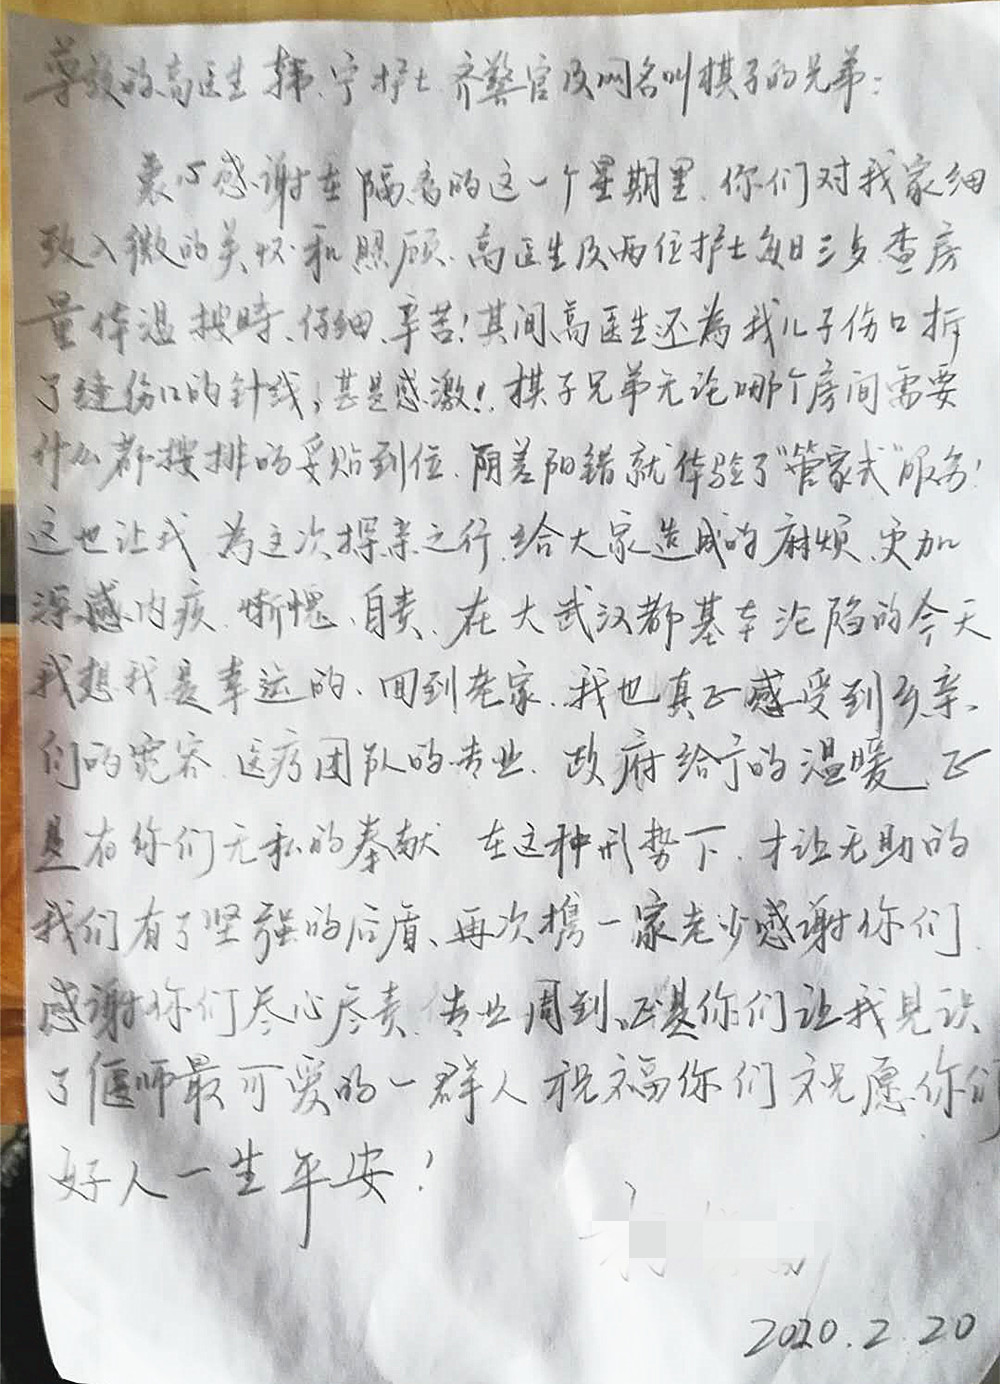 尊敬的高医生 韩、宁护士 齐警官及网名叫棋子的兄弟：
衷心感谢在隔离的这一个星期里、你们对我家细
致入微的关怀和照顾、高医生及两位护士每日三步查房
量体温 按时、仔细、辛苦！其间高医生还为我儿子伤口拆
了缝伤口的针线，甚是感激！棋子兄弟无论哪个房间需要
什么都安排的妥贴到位、阴差阳错就体验了“管家式”服务！
这也让我 为这次探亲之行 给大家造成的麻烦 更加
深感内疚、惭愧、自责、在大武汉都基本沦陷的今天
我想我是幸运的、回到老家、我也真正感受到乡亲
们的宽容、医疗团队的专业、政府给予的温暖、正
是有你们无私的奉献 在这种形势下、才让无助的
我们有了坚强的后盾、再次携一家老少感谢你们
感谢你们尽心尽责、专业周到、正是你们让我见识
了偃师最可爱的一群人 祝福你们 祝愿你们
好人一生平安！
2020.2.20